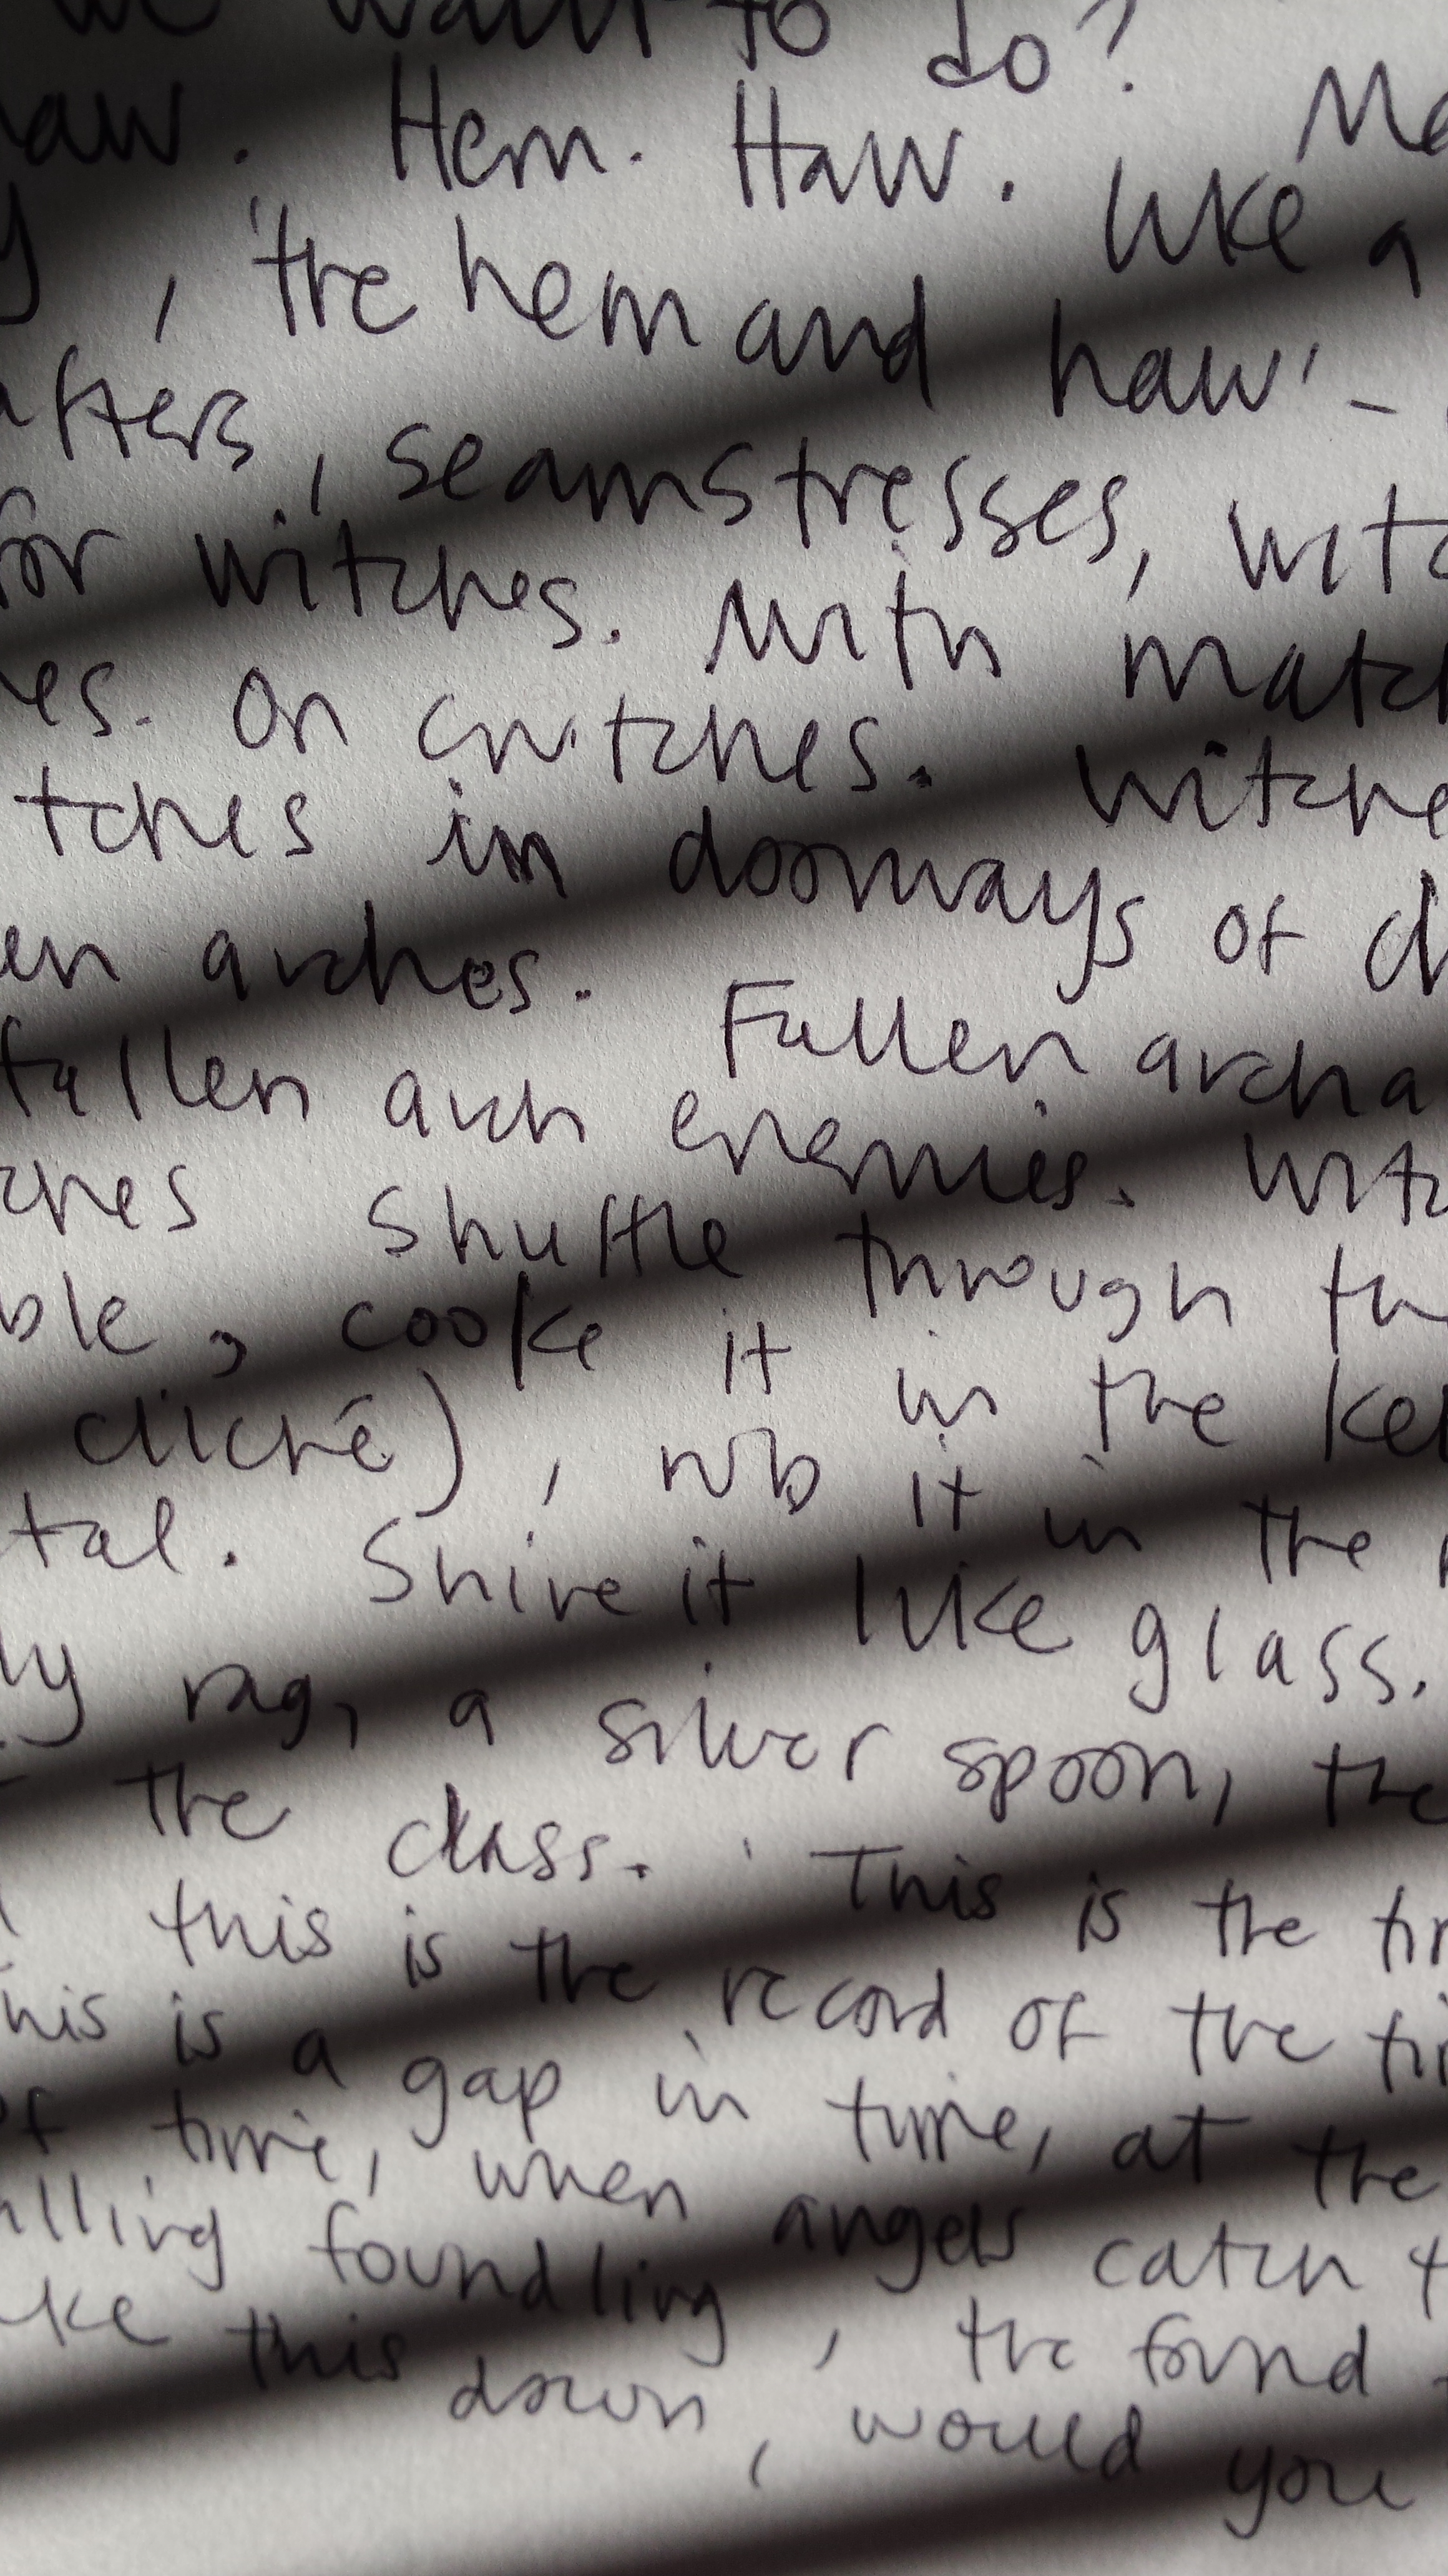 we want to do? Ma
aw. Hem. Haw. like a
y, 'the hem and haw' -
afters, seamstresses, witc
for witches. With match
es. On crutches. Witche
tches in doorways of d
en arches. Fallen archa
fallen arch enemies. Witc
ches shuttle through th
ble, cooke it in the ket
cliché), rub it in the
tal. Shine it like glass.
ly rag, a silver spoon, the
the class. This is the tim
this is the record of the ti
his is a gap in time, at the
of time, when angels catch t
lling foundling, the found
ke this down, would you